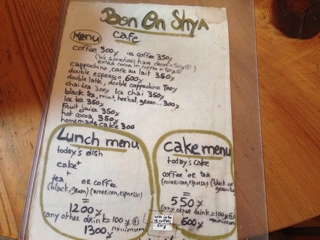 Bon On Shya
Menu Cafe
coffee 300¥ ice coffee 350¥
cappuccino, cafe au lait 350¥
double espresso 600¥
double latte, double cappuccino
chai tea 300¥ Ice chai 350¥
black tea, mint, herbal, green... 300¥
Ice tea 350¥
fruit juice 350¥
hot cocoa 350¥
homemade cake 300
Lunch menu
today's dish
cake +
tea or coffee
(black, green) (american, espresso)
=
1200¥
(any other drink ± 100¥
1300¥ minimum)
Cake menu
today's cake
coffee or tea
(american, espresso) (black or
=
550¥
(any other drink ± 100¥
600¥ minimum)